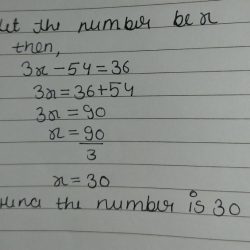 let the number be x
then,
3x - 54 = 36
3x = 36 + 54
3x = 90
x = 90
3
x = 30
Hence the number is 30